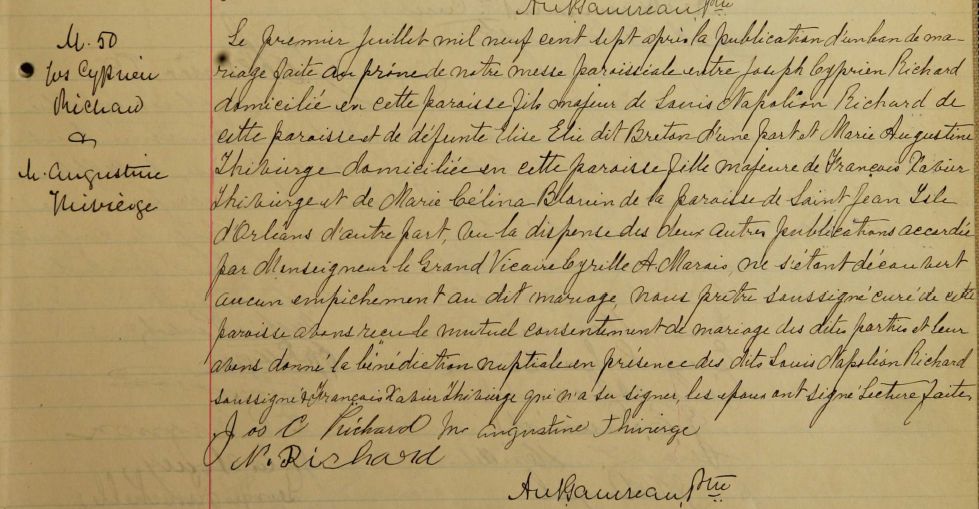 M. 50
Jos Cyprien
Richard
&
M. Augustine
Thivierge
Le premier Juillet mil neuf cent sept après la publication d'un ban de ma-
riage faite au prône de notre messe paroissiale entre Joseph Cyprien Richard
domicilié en cette paroisse fils majeur de Louis Napoléon Richard de
cette paroisse et de défunte Elise Elie dit Breton d'une part et Marie Augustine
Thivierge domiciliée en cette paroisse fille majeure de François Xavier
Thivierge et de Marie Célina Blouin de la paroisse de Saint Jean Isle
d'Orléans d'autre part, vu la dispense des deux autres publications accordée
par Monseigneur le Grand Vicaire Cyrille A Marois, ne s'étant découvert
aucun empêchement au dit mariage, nous prêtre soussigné curé de cette
paroisse avons reçu le mutuel consentement de mariage des dites parties et leur
avons donné la bénédiction nuptiale en présence des dits Louis Napoléon Richard
soussigné & François Xavier Thivierge qui n'a su signer, les époux ont signé Lecture faite.
Jos C Richard Me Augustine Thivierge
N. Richard
Ptre